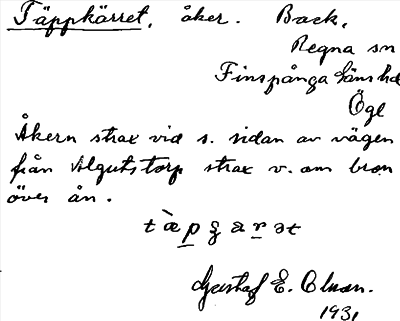 Täppkärret, åker. Back,
Regna sn
Finspånga läns hd
Ögl
Åkern strax vid s. sidan av vägen
från Algutstorp strax v. om bron
över ån.
Gustaf E.
1931